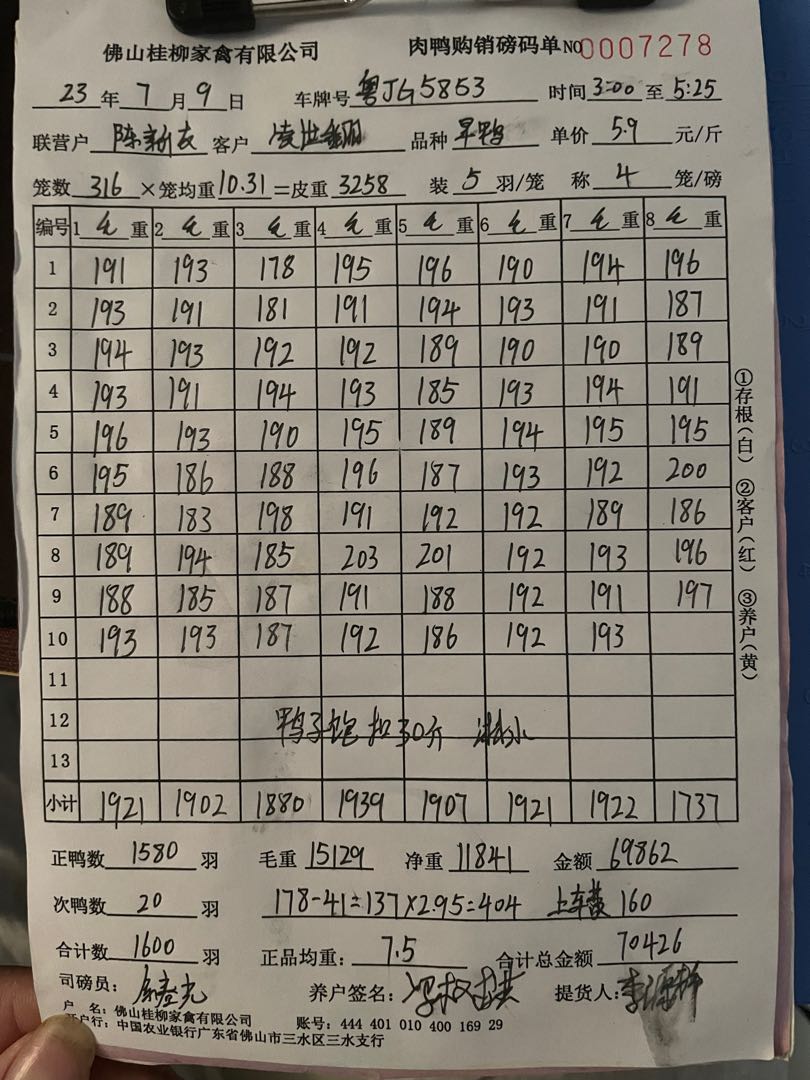 佛山桂柳家禽有限公司 肉鸭购销磅码单 NO 0007278
23 年 7 月 9 日 车牌号 粤JG5853 时间 3:00 至 5:25
联营户 陈新友 客户 品种 旱鸭 单价 5.9 元/斤
笼数 316 ×笼均重 10.31 =皮重 3258 装 5 羽/笼 称 4 笼/磅
编号 1 毛 重 2 毛 重 3 毛 重 4 毛 重 5 毛 重 6 毛 重 7 毛 重 8 毛 重
1 191 193 178 195 196 190 194 196
2 193 191 181 191 194 193 191 187
3 194 193 192 192 189 190 190 189
4 193 191 194 193 185 193 194 191
5 196 193 190 195 189 194 195 195
6 195 186 188 196 187 193 192 200
7 189 183 198 191 192 192 189 186
8 189 194 185 203 201 192 193 196
9 188 185 187 191 188 192 191 197
10 193 193 187 192 186 192 193
11
12 鸭子饱 扣30斤 淋水
13
小计 1921 1902 1880 1939 1907 1921 1922 1737
①存根(白) ②客户(红) ③养户(黄)
正鸭数 1580 羽 毛重 15129 净重 11841 金额 69862
次鸭数 20 羽 178-41=137×2.95=404 上车费 160
合计数 1600 羽 正品均重: 7.5 合计总金额 70426
司磅员: 养户签名: 提货人:
户 名: 佛山桂柳家禽有限公司 账号: 444 401 010 400 169 29
开户行: 中国农业银行广东省佛山市三水区三水支行